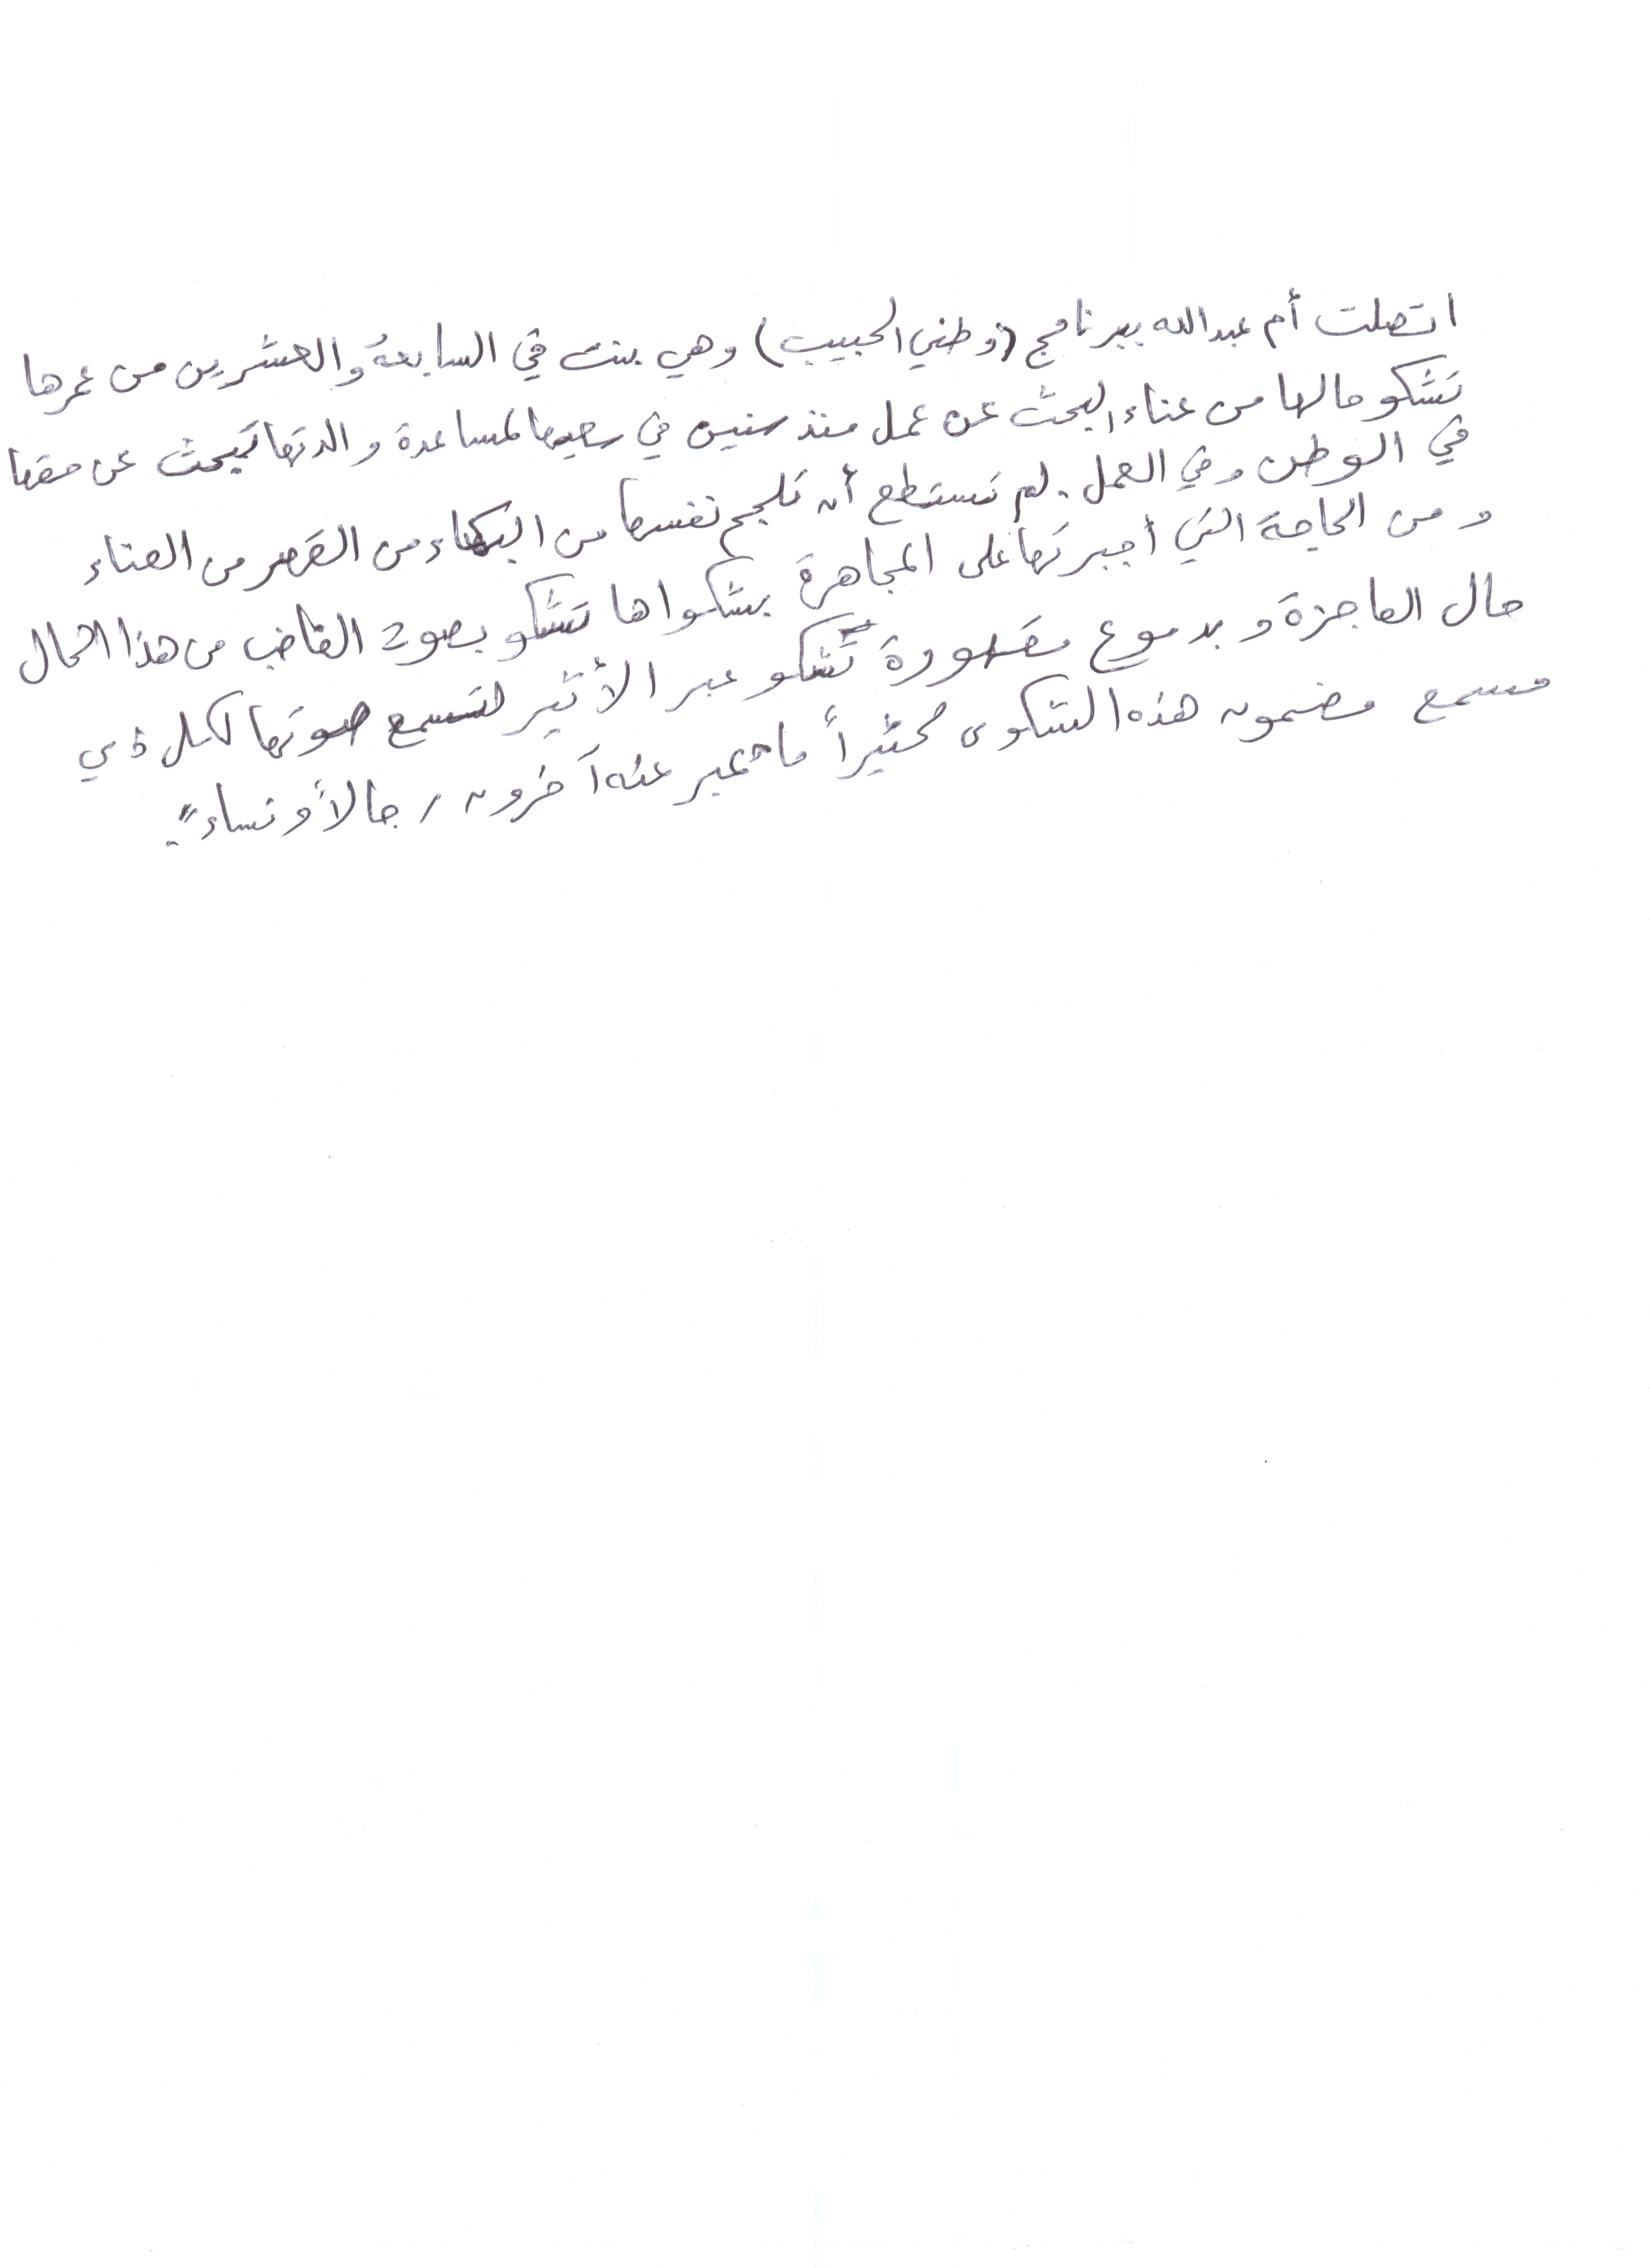 اتصلت أم عبدالله ببرنامج (وطني الحبيب) وهي بنت في السابعة والعشرين من عمرها
تشكو حالها من عناء البحث عن عمل منذ سنين في سعيها لمساعدة والدتها تبحث عن حقها
في الوطن وفي العمل. لم تستطع أن تلجم نفسها من البكاء من القهر من العناء
ومن الحاجة التي أجبرتها على المجاهرة بشكواها تشكو بصوت الغاضب من هذا الحال
حال العاجزة وبدموع مقهورة تشكو عبر الأثير لتسمع صوتها لكل ذي
مسمع مضمون هذه الشكوى كثيراً ما تعبر عنه آخرون رجالاً ونساءً.